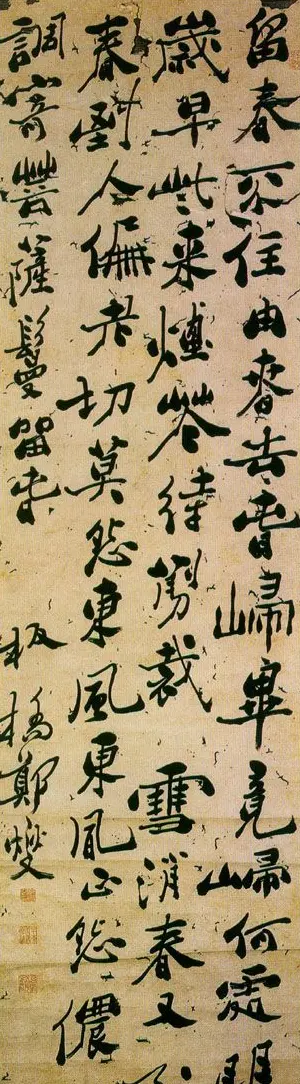 留春不住由春去春歸畢竟歸何處明
歲早些来煙花待剪裁 雪消春又
春到人偏老切莫怨東風東風正怨儂
調寄菩薩鬘留春 板橋鄭燮